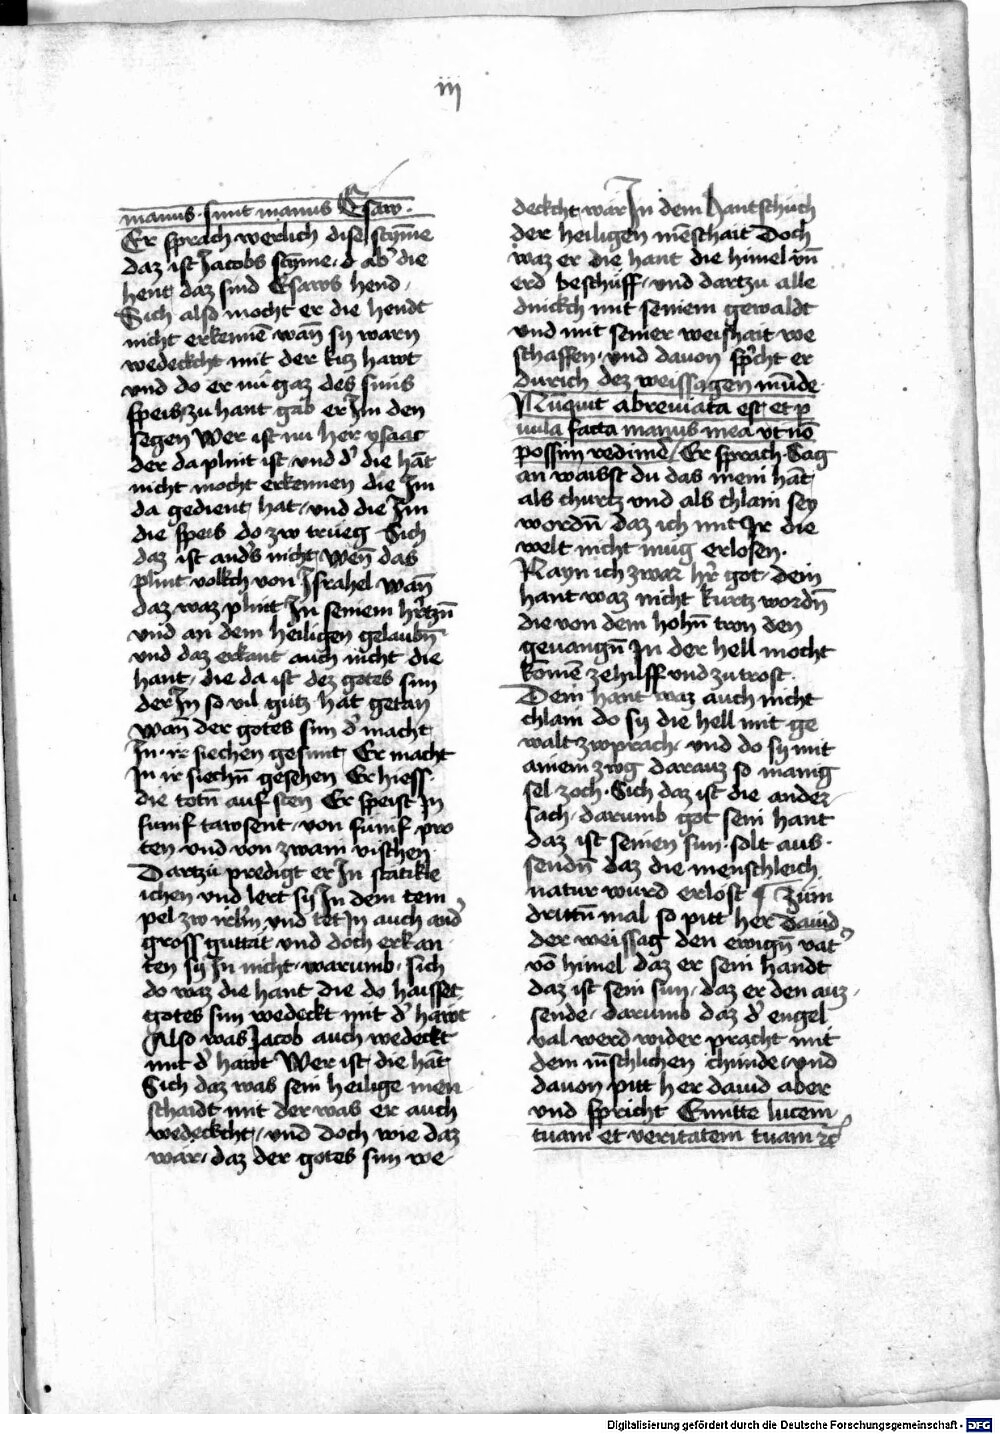 iij
manus · sunt manus Esaw ·
Er sprach werlich disel stym̄e
daz ist Jacobs stym̄e · d' ab' die
hent daz sind Esaws hend /
Sich also mocht er die hendt
nicht erkennē wañ sy warn
wedeckcht mit der kitz hawt
und do er nu gaz des suns
speis zu hant gab er Im den
segen Wer ist nu her ysaac
der da plint ist · und d' die hāt
nicht mocht erkennen die Im
da gedient hat / und die Im
die speis do zw trueg Sich
daz ist and's nicht / weñ das
plint volkch von Israhel wañ
daz waz plint In seinem hʼrtzn̄
und an dem heiligen gelaubn̄
und daz erkant auch nicht die
hant / die da ist dez gotes sun
der In so vil gutz hat getan
wañ der gotes sun d' macht
In · ir siechen gesunt / Er macht
In ir siechn̄ gesehen Er hiess
die totn̄ auf sten Er speist In
funf tawsent / von funf pro
ten und von zwain vischen
Dartzu predigt er In stätikle
ichen und lert sy In dem tem
pel zw irl'm und tet In auch and'
gross guttät und doch erkan
ten sy In nicht · warumb · sich
do waz die hant die do haisset
gotes sun wedeckt mit d' hawt
Also was Jacob auch wedeckt
mit d' hawt Wer ist die hāt
Sich daz was sein heilige men
schaidt mit der was er auch
wedeckcht / und doch wie daz
war / daz der gotes sun we
deckcht war In dem hantschuch
der heiligen mēschait Doch
waz er die hant die himel vn̄
erd beschuff / und dartzu alle
dinckch mit seinem gewaldt
und mit seiner weishait we
schaffen · und davon sp'cht er
durich dez weissagen munde
Nu͂quit abreviata est et p
vula facta manus mea vt nō
possim redimē / Er sprach · Sag
an waisst du das mein hāt
als churtz und als chlain sey
wordn̄ / daz ich mit Ir die
welt nicht mug erlosen ·
Nayn ich zwar h'r got / dein
hant waz nicht kurtz wordn̄
die von dem hohn̄ tron den
gevangn̄ In der hell mocht
komē ze hilff und zu trost ·
Dein hant waz auch nicht
chlain do sy die hell mit ge
walt zwprach / und do sy mit
ainem zwg darauz so manig
sel zoch · Sich daz ist die ander
sach / darumb got sein hant
daz ist seinen sun · solt aus ·
sendn̄ daz die menschleich
natur wurd erlost ¶ Zum
drittn̄ mal so pitt her david
der weissag den ewign̄ vat'
vō himel daz er sein handt
daz ist sein sun / daz er den auz /
sende / darumb daz d' engel
val werd wider pracht mit
dem mēschlichen chunde / und
davon pitt her david aber
und spricht Emitte lucem
tuam et veritatem tuam ꝛc̄
Digitalisierung gefördert durch die Deutsche Forschungsgemeinschaft - DFG